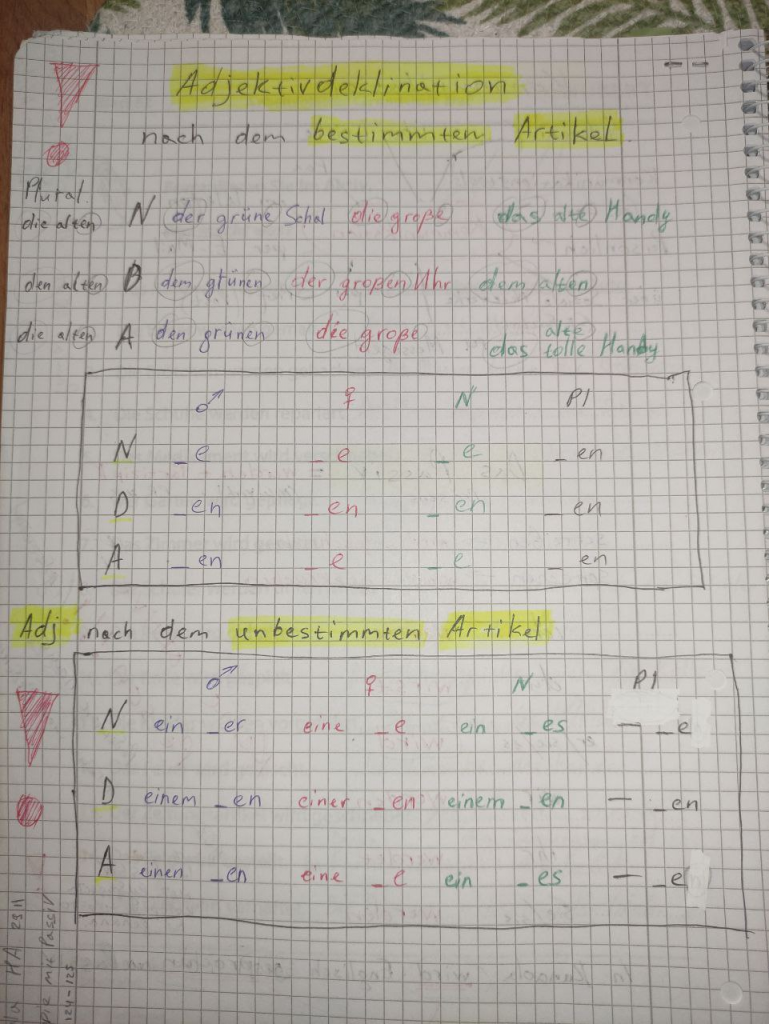 Adjektivdeklination
nach dem bestimmten Artikel.
Plural
die alten N der grüne Schal die große das alte Handy
den alten D dem grünen der großen Uhr dem alten
die alten A den grünen die große alte
das tolle Handy
♂ ♀ N Pl
N _e _e _e _en
D _en _en _en _en
A _en _e _e _en
Adj nach dem unbestimmten Artikel
♂ ♀ N Pl
N ein _er eine _e ein _es — _e
D einem _en einer _en einem _en — _en
A einen _en eine _e ein _es — _e
HA 23.11
mit Passiv
124-125